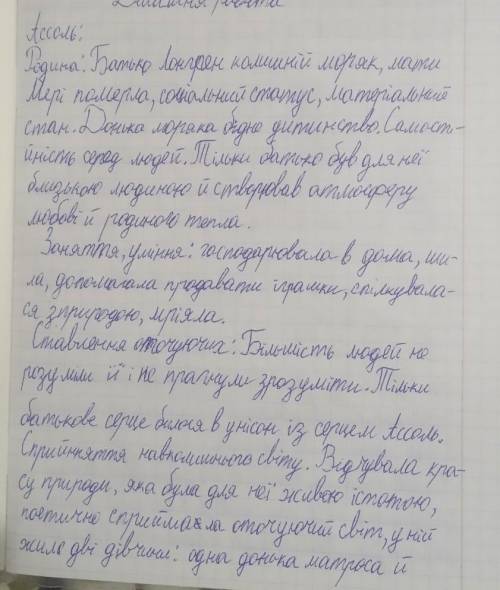 Домашня робота
Ассоль:
Родина: Батько Лонгрен колишній моряк, мати
Мері померла, соціальний статус, матеріальний
стан. Донька моряка бідне дитинство. Самост-
йність серед людей. Тільки батько був для неї
близькою людиною й створював атмосферу
любові й родиного тепла.
Заняття, уміння: господарювала в дома, ши-
ла, допомагала продавати іграшки, спілкувала-
ся з природою, мріяла.
Ставлення оточуючих: Більшість людей не
розуміли її і не прагнули зрозуміти. Тільки
батькове серце билося в унісон із серцем Ассоль.
Сприйняття навколишнього світу. Відчувала кра-
су природи, яка була для неї живою істотою,
поетично сприймала оточуючий світ, у ній
жило дві дівчини: одна донька матроса й